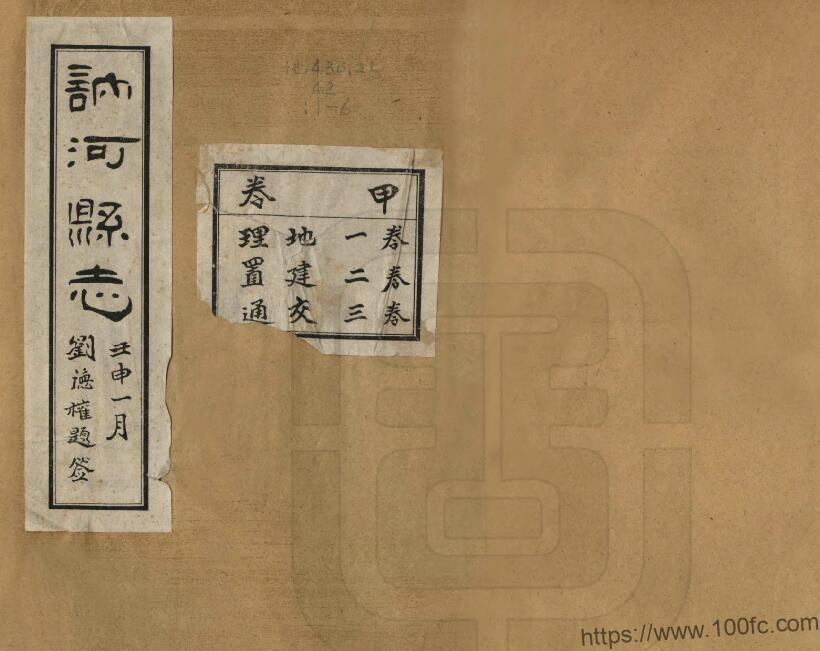 訥河縣志
壬申一月
劉德權題签
42
11-6
甲卷
卷一地理
卷二建置
卷三交通
https://www.100fc.com